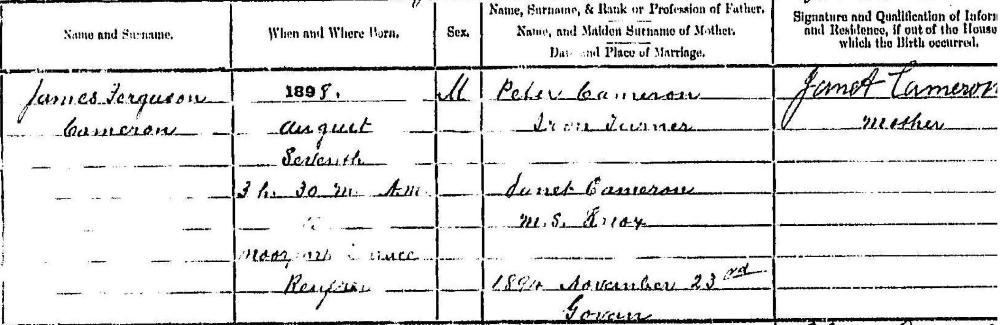 Name and Surname.
When and Where Born.
Sex.
Name, Surname, & Rank or Profession of Father.
Name, and Maiden Surname of Mother.
Date and Place of Marriage.
Signature and Qualification of Infor
and Residence, if out of the House
which the Birth occurred.
James Ferguson
Cameron
1898.
August
Seventh
3 h. 30 m. A.M.
M
Peter Cameron
Iron Turner
Janet Cameron
M.S. Knox
November 23rd
Govan
Janet Cameron
Mother